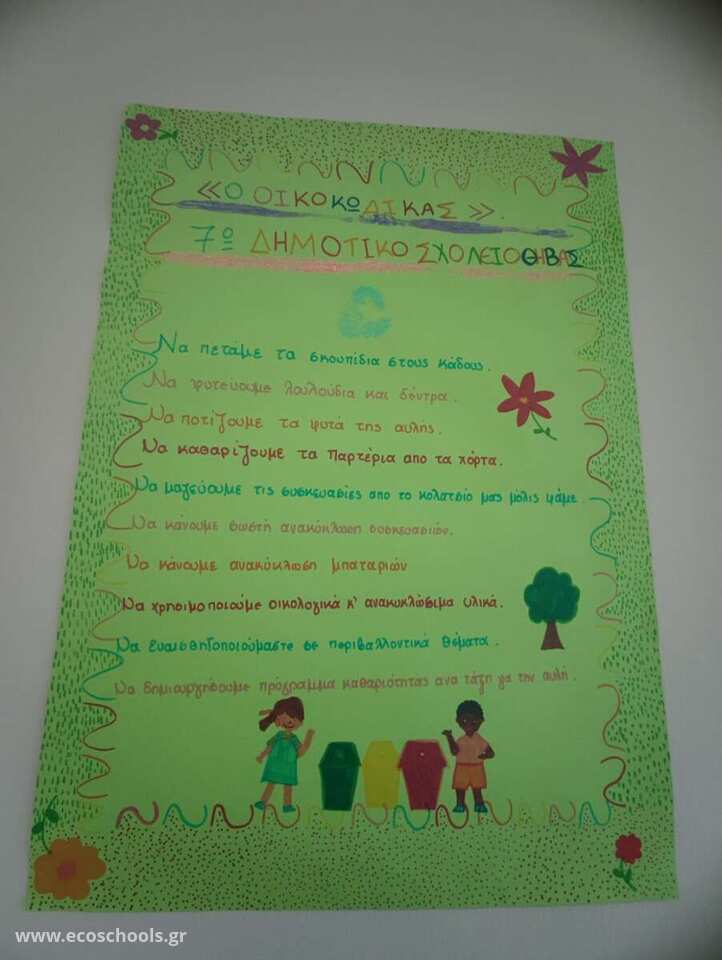 «Ο ΟΙΚΟΚΩΔΙΚΑΣ».
7ο ΔΗΜΟΤΙΚΟ ΣΧΟΛΕΙΟ ΘΗΒΑΣ
Να πεταμε τα σκουπίδια στους κάδους.
Να φυτεύουμε λουλούδια και δέντρα.
Να ποτίζουμε τα φυτά της αυλής.
Να καθαρίζουμε τα Παρτέρια απο τα χόρτα.
Να μαζεύουμε τις συσκευασίες απο το κολατσίο μας μόλις φάμε.
Να κάνουμε σωστή ανακύκλωση συσκευασιών.
Να κάνουμε ανακύκλωση μπαταριών
Να χρησιμοποιούμε οικολογικά κ' ανακυκλώσιμα υλικά.
Να ευαισθητοποιούμαστε σε περιβαλλοντικά θέματα.
Να δημιουργήσουμε πρόγραμμα καθαριότητας ανα τάξη για την αυλή.
www.ecoschools.gr